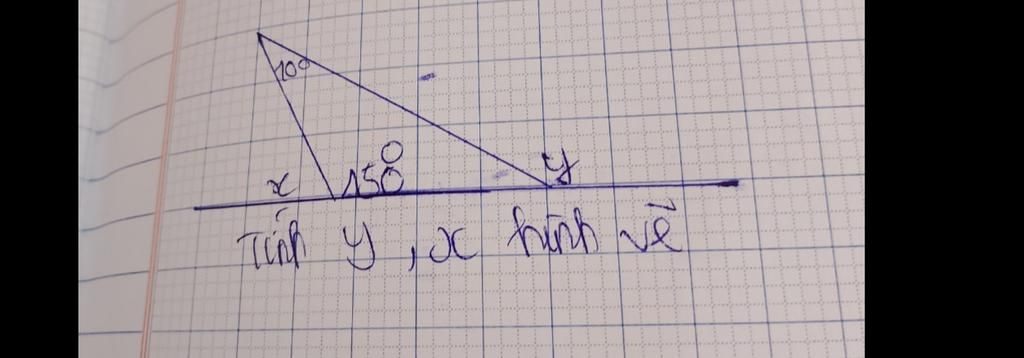 10°
x 150° y
Tính y, x hình vẽ